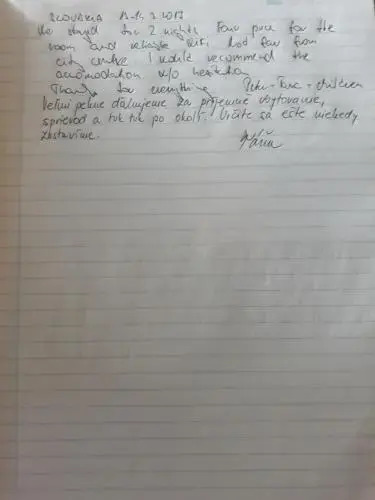 SLOVAKIA 2017
We stayed for 2 nights. Fair price for the
room and reliable WiFi. Not far from
city centre. I would recommend the
accomodation w/o hesitation
Thanks for everything - children
Veľmi pekne ďakujeme za príjemné ubytovanie,
sprievod a tuk tuk po okolí. Určite sa ešte niekedy
zastavíme.